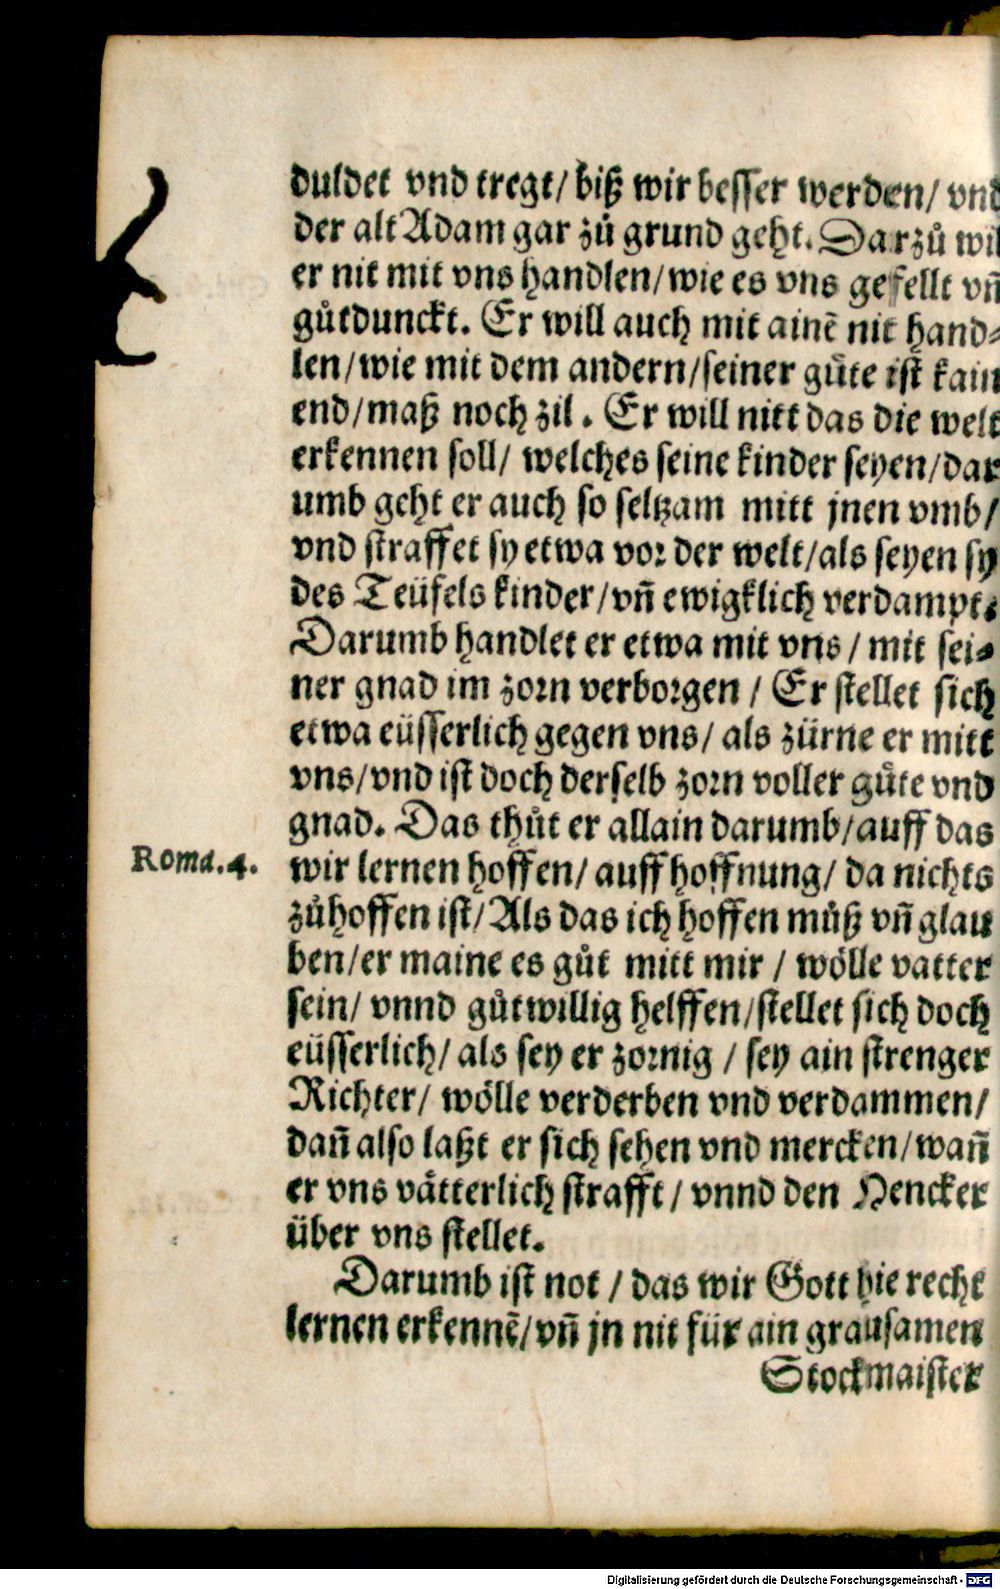 duldet vnd tregt/ biß wir besser werden/ vnd
der alt Adam gar zů grund geht. Darzů wil
er nit mit vns handlen/wie es vns gefellt vñ
gůtdunckt. Er will auch mit ainẽ nit hand⸗
len/wie mit dem andern/seiner gůte ist kain
end/maß noch zil. Er will nitt das die welt
erkennen soll/ welches seine kinder seyen/dar
umb geht er auch so seltzam mitt jnen vmb/
vnd straffet sy etwa vor der welt/als seyen sy
des Teüfels kinder/vñ ewigklich verdampt.
Darumb handlet er etwa mit vns/ mit sei⸗
ner gnad im zorn verborgen/ Er stellet sich
etwa eüsserlich gegen vns/ als zürne er mitt
vns/vnd ist doch derselb zorn voller gůte vnd
gnad. Das thůt er allain darumb/auff das
Roma.4. wir lernen hoffen/ auff hoffnung/ da nichts
zůhoffen ist/Als das ich hoffen můß vñ glau
ben/er maine es gůt mitt mir/ wölle vatter
sein/ vnnd gůtwillig helffen/stellet sich doch
eüsserlich/ als sey er zornig/ sey ain strenger
Richter/ wölle verderben vnd verdammen/
dañ also laßt er sich sehen vnd mercken/wañ
er vns våtterlich strafft/ vnnd den Hencker
über vns stellet.
Darumb ist not/ das wir Gott hie recht
lernen erkennẽ/vñ jn nit für ain grausamen
Stockmaister
Digitalisierung gefördert durch die Deutsche Forschungsgemeinschaft - DFG